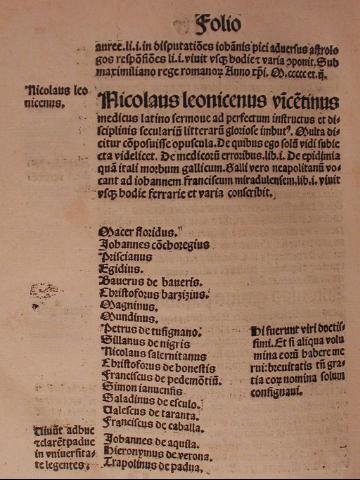 Folio
auree. li. i. in disputatiões iohānis pici adversus astrolo
gos respõsiões li. i. vivit vsqȝ hodie et varia ꝯponit. Sub
maximiliano rege romanoꝝ Anno
Nicolaus leo
nicenus.
Nicolaus leonicenus vincẽtinus
medicus latino sermone ad perfectum instructus et di
sciplinis seculariū litterarū gloriose imbut⁹. Multa di
citur cõposuisse opuscula. De quibus ego solū vidi subie
cta videlicet. De medicorū erroribus. lib. i. De epidimia
quā itali morbum gallicum. Galli vero neapolitanū vo
cant ad iohannem franciscum miradulensem. lib. i. vivit
vsqȝ hodie ferrarie et varia conscribit.
Macer floridus.
Johannes cõchoregius
Priscianus
Egidius.
Bauerus de baueris.
Christoforus barzizius.
Magninus.
Mundinus.
Petrus de tusignano.
Sillanus de nigris
Nicolaus salernitanus
Christoforus de honestis
Franciscus de pedemõtiū.
Simon ianuensis
Saladinus de esculo.
Valescus de taranta.
Franciscus de caballa.
Hi fuerunt viri doctis
simi. Et si aliqua volu
mina eorū habere me
rui: breuitatis tñ gra
tia eoꝝ nomina solum
consignaui.
Viuūt adhuc
et clarēt padue
in vniuersita
te legentes.
Johannes de aquila.
Hieronymus de verona.
Trapolinus de padua.